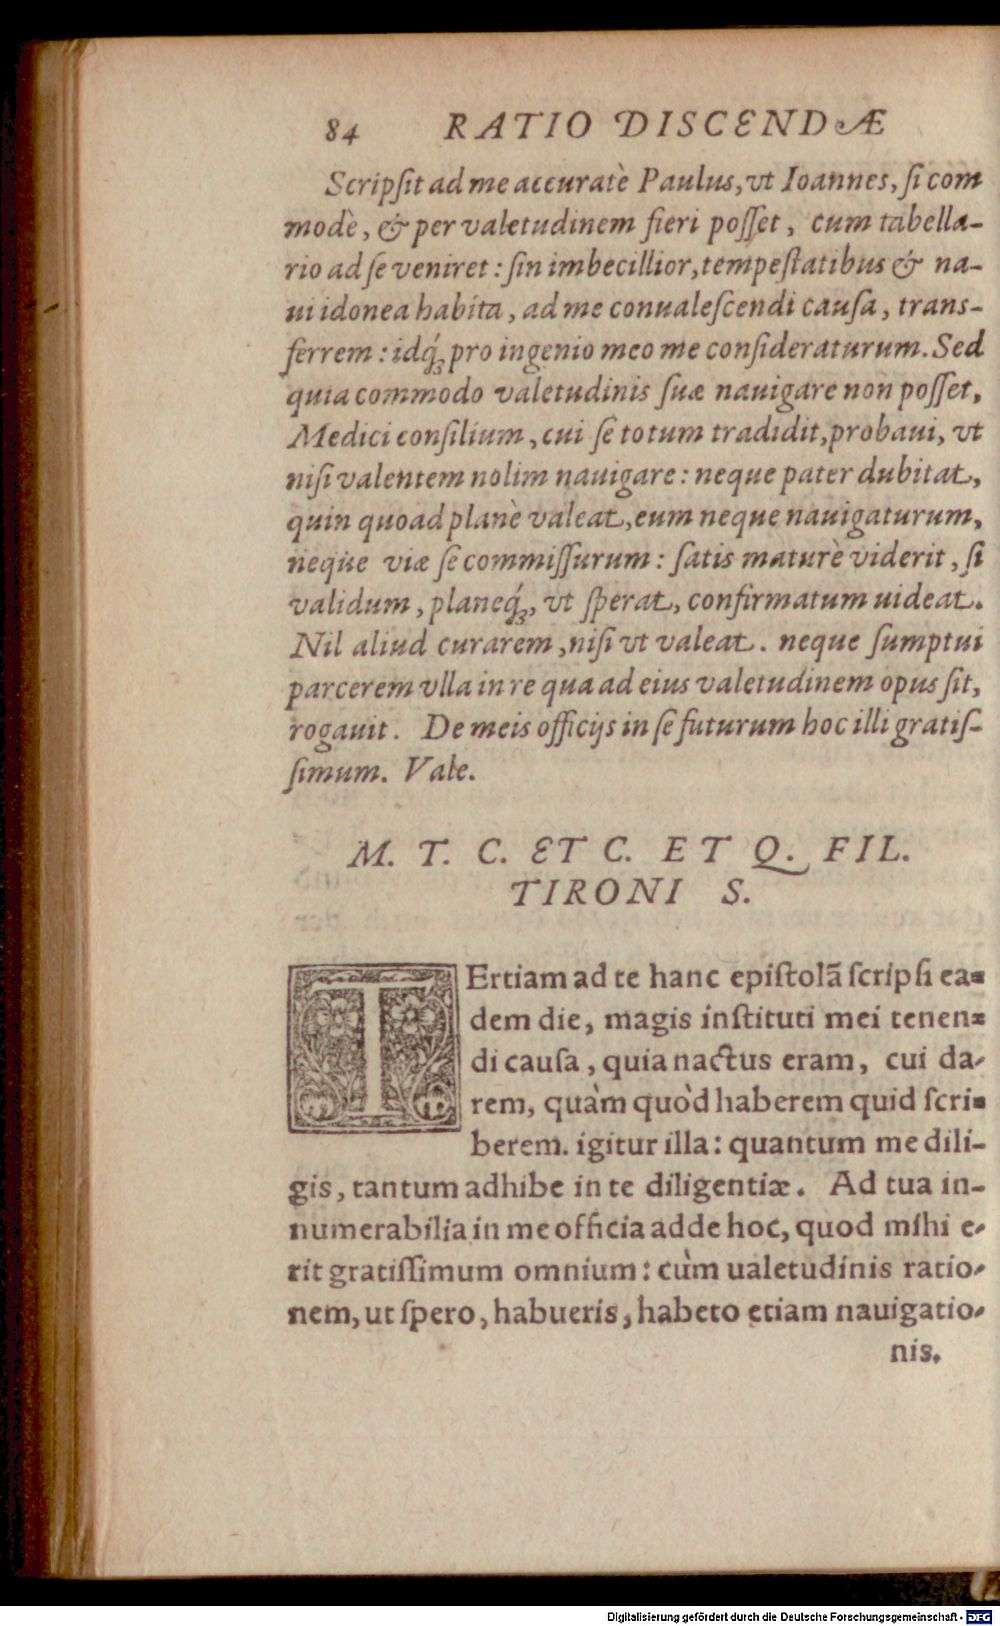 84 RATIO DISCENDÆ
Scripſit ad me accuratè Paulus, vt Ioannes, ſi com
modè, & per valetudinem fieri poſſet, cum tabella-
rio ad ſe veniret: ſin imbecillior, tempeſtatibus & na-
ui idonea habita, ad me conualeſcendi cauſa, trans-
ferrem: idq́; pro ingenio meo me conſideraturum. Sed
quia commodo valetudinis ſuæ nauigare non poſſet,
Medici conſilium, cui ſe totum tradidit, probaui, vt
niſi valentem nolim nauigare: neque pater dubitat,
quin quoad planè valeat, eum neque nauigaturum,
neque viæ ſe commiſſurum: ſatis maturè viderit, ſi
validum, planeq́;, vt ſperat, confirmatum uideat.
Nil aliud curarem, niſi vt valeat. neque ſumptui
parcerem vlla in re qua ad eius valetudinem opus ſit,
rogauit. De meis officijs in ſe futurum hoc illi gratiſ-
ſimum. Vale.
M. T. C. ET C. ET Q. FIL.
TIRONI S.
TErtiam ad te hanc epiſtolã ſcripſi ea-
dem die, magis inſtituti mei tenen-
di cauſa, quia nactus eram, cui da-
rem, quàm quòd haberem quid ſcri-
berem. igitur illa: quantum me dili-
gis, tantum adhibe in te diligentiæ. Ad tua in-
numerabilia in me officia adde hoc, quod mihi e-
rit gratiſſimum omnium: cùm ualetudinis ratio-
nem, ut ſpero, habueris, habeto etiam nauigatio-
nis.
Digitalisierung gefördert durch die Deutsche Forschungsgemeinschaft - DFG